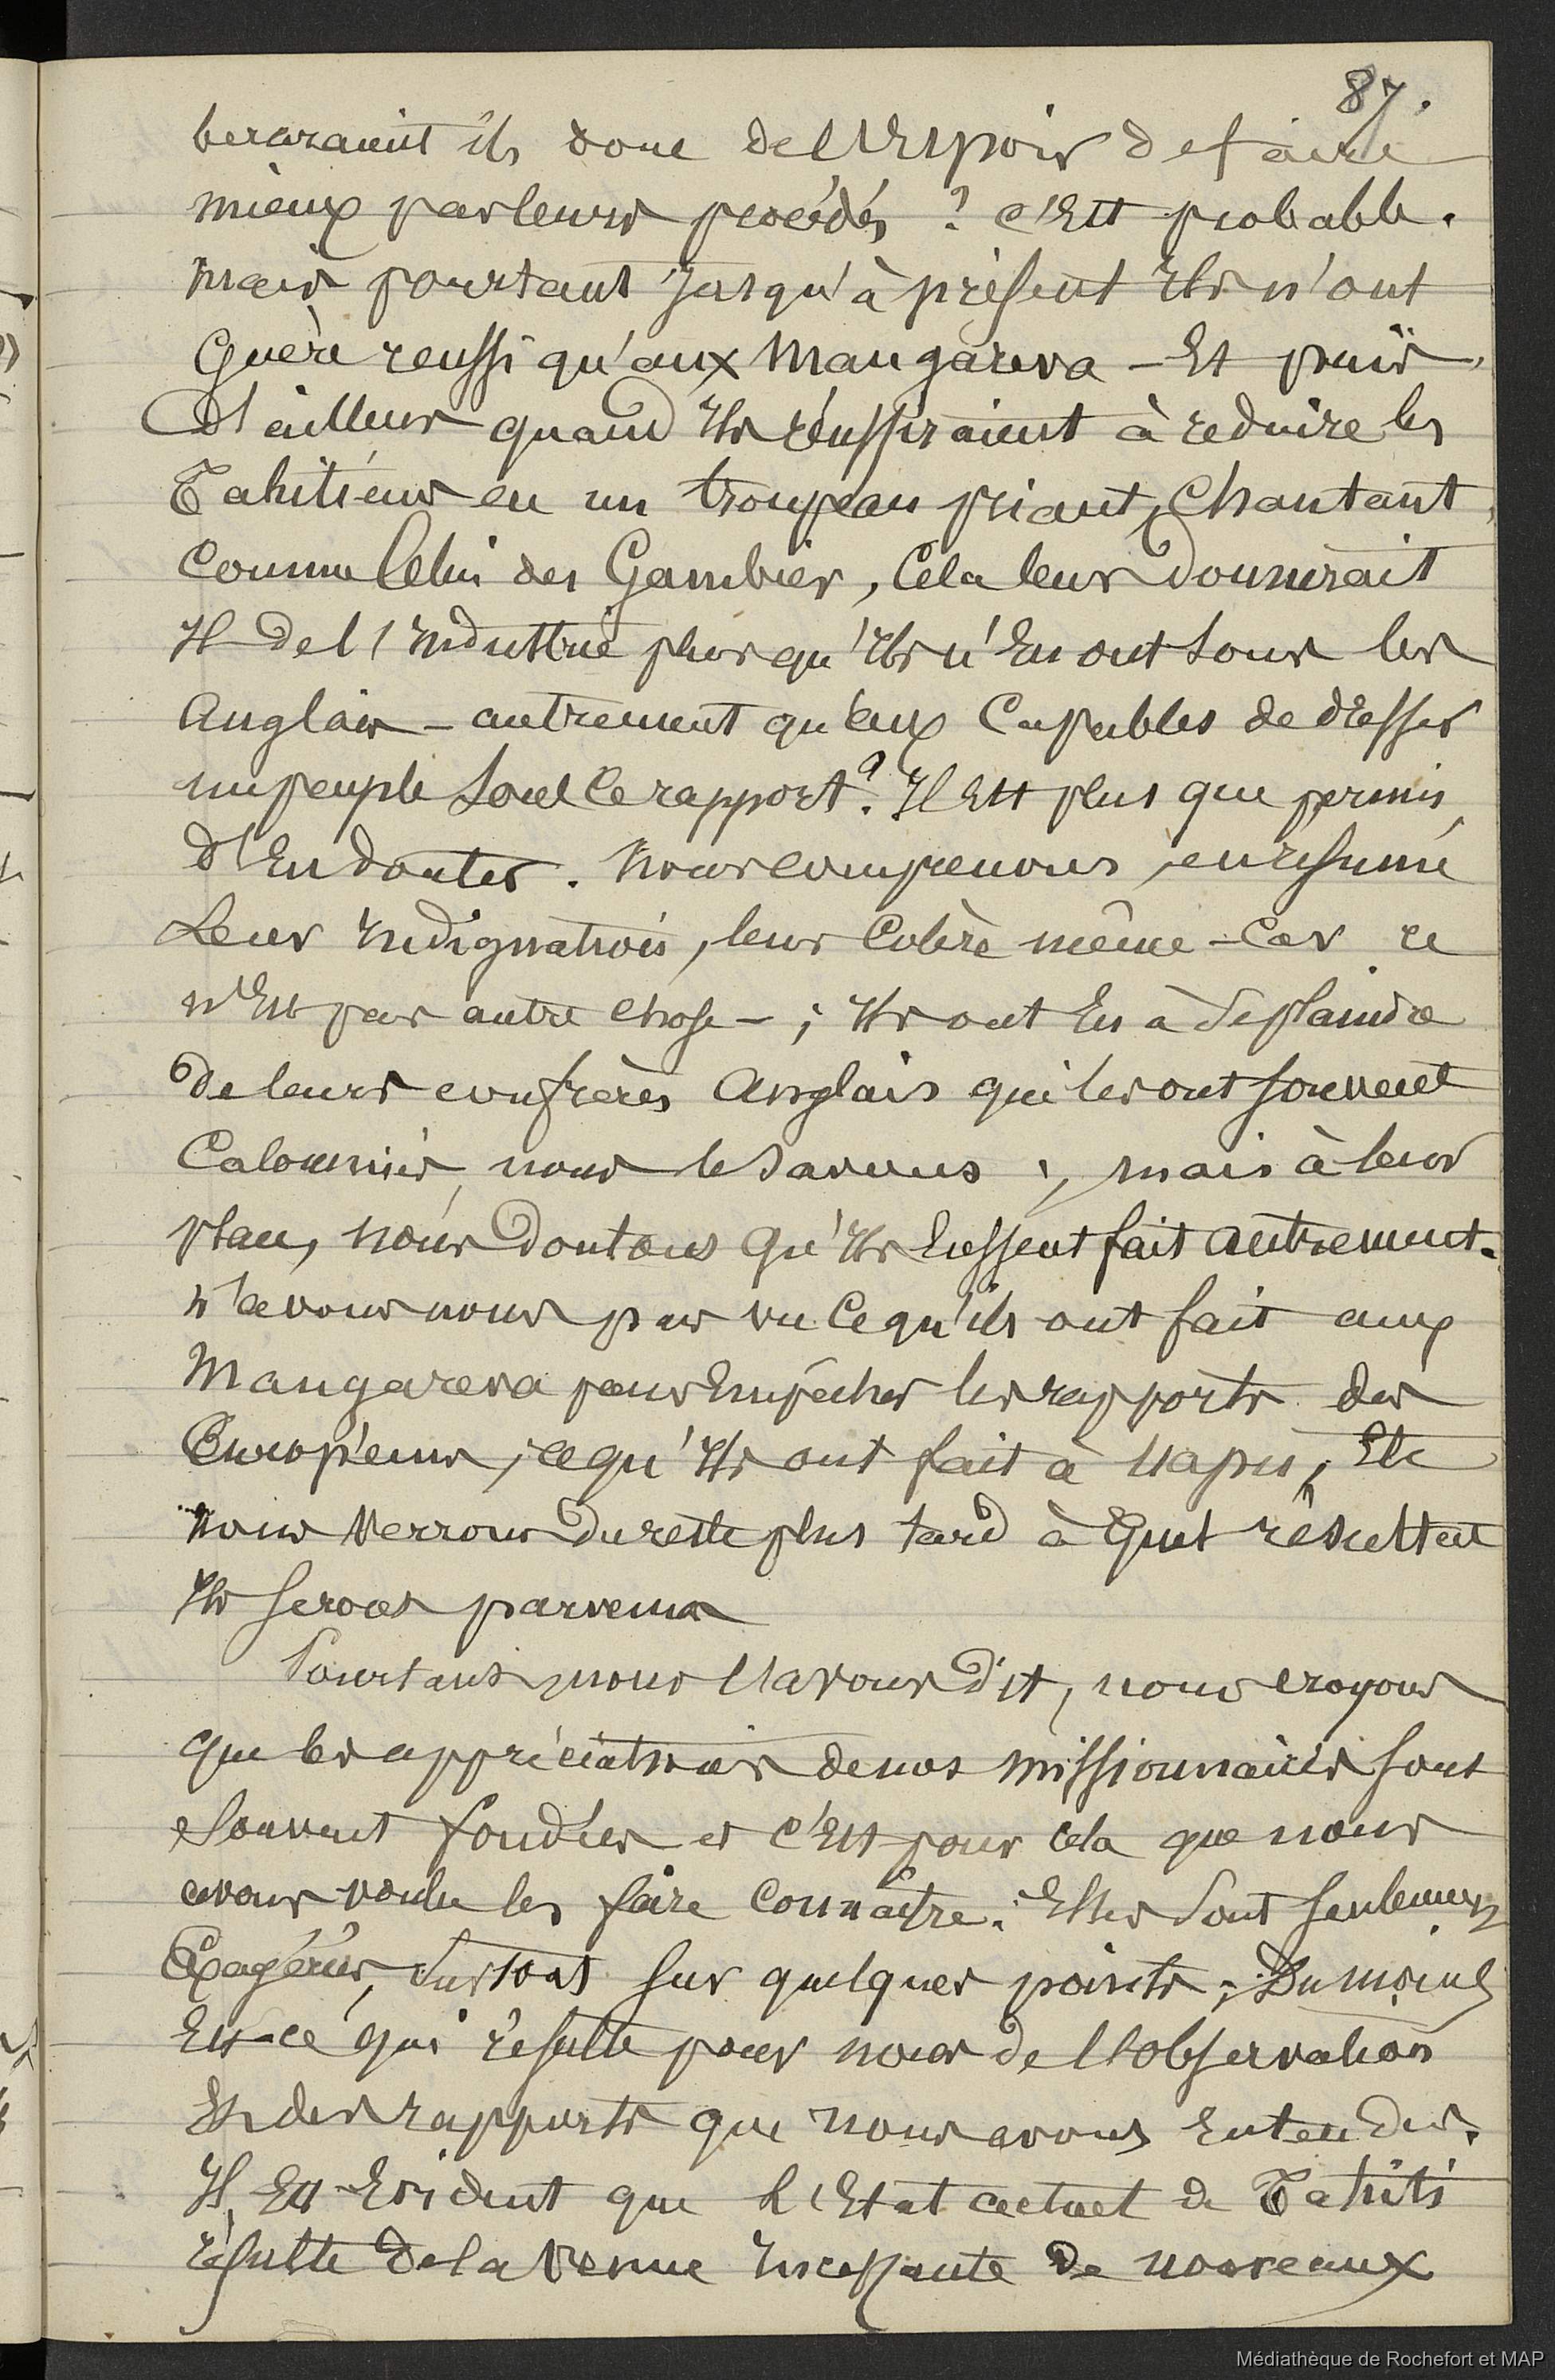 87.
berceraient ils donc de l'Espoir de faire
mieux par leurs procédés ? c'Est probable.
mais pourtant jusqu'à présent Ils n'ont
Guère reussi qu'aux Mangareva – Et puis,
D'ailleurs quand Ils réussiraient à reduire les
Tahitiens en un troupeau priant, Chantant,
Comme Celui des Gambier, Cela leur Donnerait
Il de l'Industrie plus qu'Ils n'En ont sous les
Anglais – autrement qu'eux Capables de dresser
un peuple sous Ce rapport ? Il Est plus que permis
d'En douter. Nous comprenons, en résumé
Leur Indignation, leur Colère même – Car ce
n'Est pas autre chose – ; Ils ont Eu à se plaindre
de leurs confrères Anglais qui les ont souvent
Calomniés, nous le savons ; mais à leur
place, nous Doutons qu'Ils Eussent fait autrement.
n'avons nous pas vu Ce qu'ils ont fait aux
Mangareva pour Empêcher les rapports des
Européens, ce qu'Ils ont fait à Uapu, Etc
nous Verrons du reste plus tard à Quel résultat
Ils seront parvenus
Pourtant, nous l'avons Dit, nous croyons
que les appréciations de nos missionnaires sont
souvent fondées et c'Est pour cela que nous
avons voulu les faire Connaître. Elles sont seulement
Exagérées, surtout sur quelques points ; Du moins
Est-ce qui résulte pour nous de l'observation
Et des rapports que nous avons Entendus.
Il Est Evident que l'Etat actuel de Tahiti
résulte de la Venue Incessante de nouveaux
Médiathèque de Rochefort et MAP